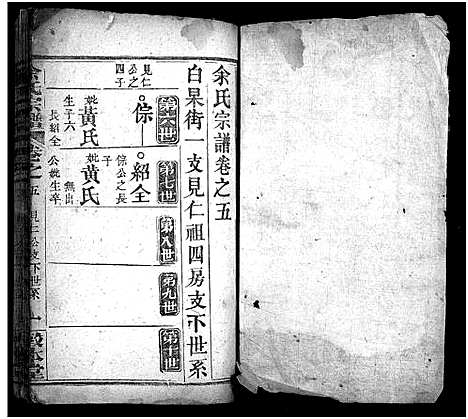 余氏宗譜卷之五
白杲街一支見仁祖四房支下世系
第六世
見仁公之四子
倧
妣黃氏
生子六
長紹全
第七世
紹全
倧公之長子
妣黃氏
無出
公妣生卒
第八世
第九世
第十世
余氏宗譜
卷之五
見仁公支下世系
一
敦本堂